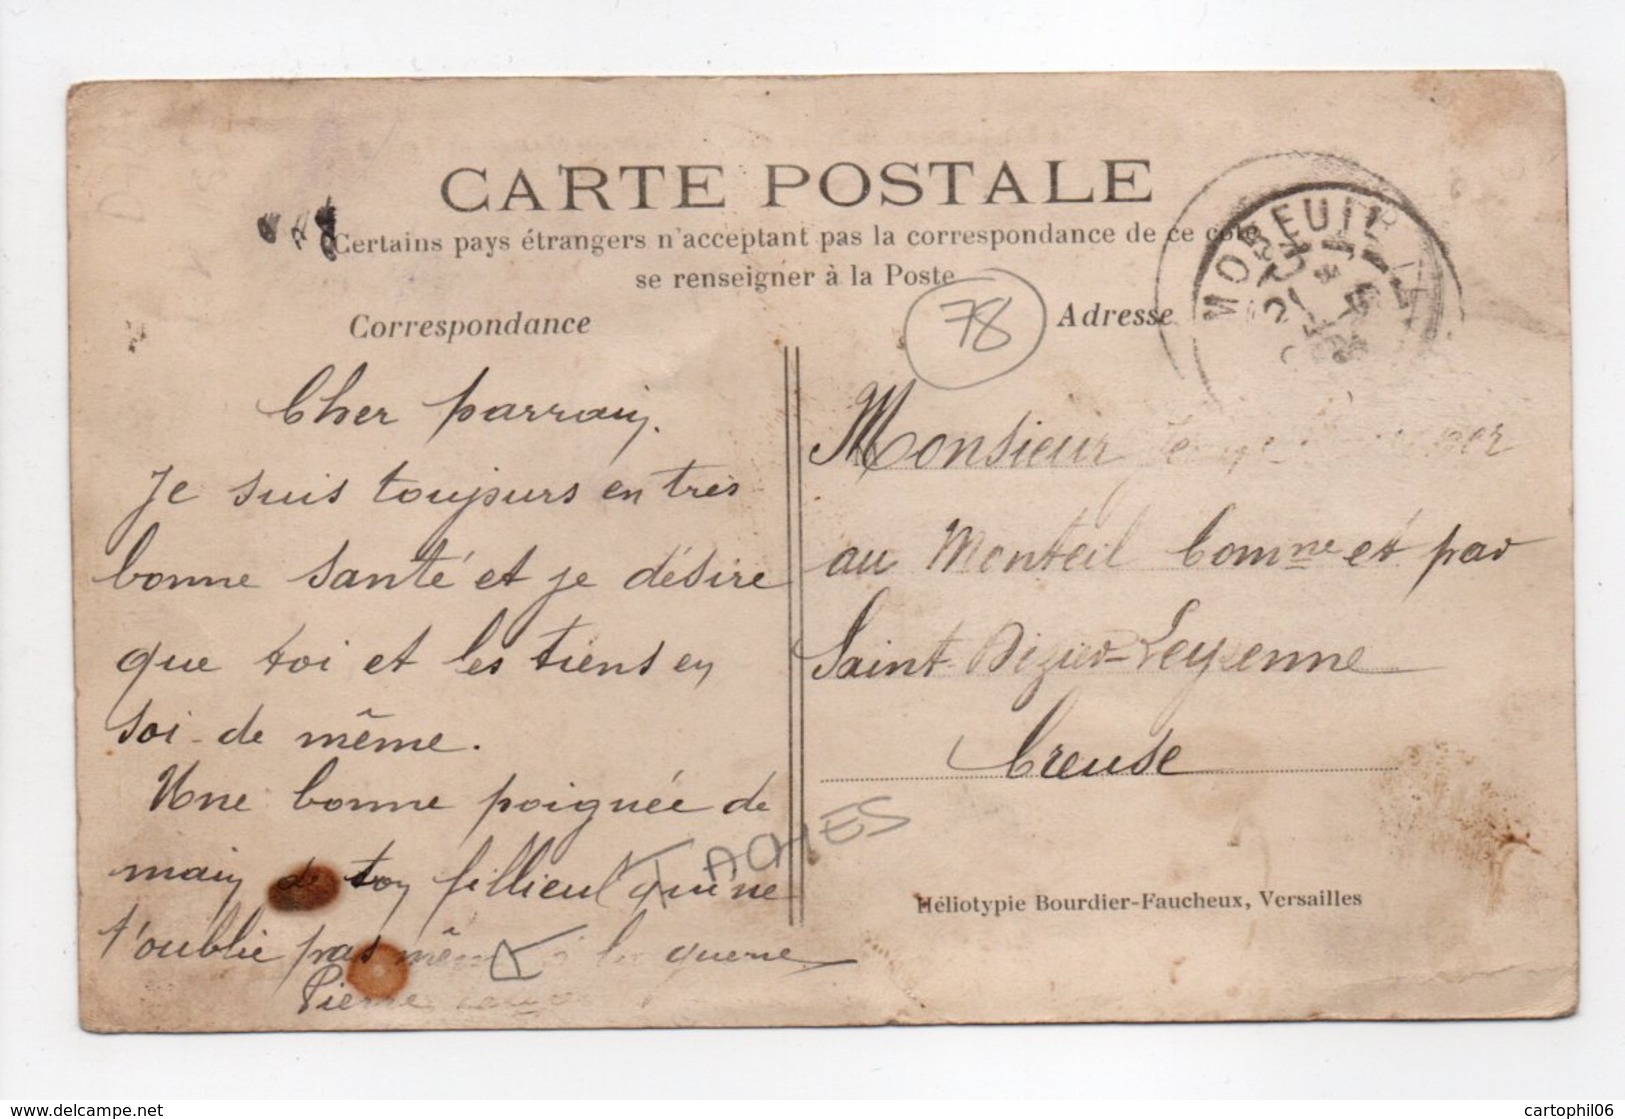 CARTE POSTALE
Certains pays étrangers n'acceptant pas la correspondance de ce côté
se renseigner à la Poste
Correspondance
78
Adresse
MOREUIL
Cher parrain.
Je suis toujours en très
bonne santé et je désire
que toi et les tiens en
soi de même.
Une bonne poignée de
main de ton fillieul qui ne
t'oublie pas même à la guerre
Pierre
TACHES
Monsieur
au Monteil Comne et par
Saint-Dizier-Leyrenne
Creuse
Héliotypie Bourdier-Faucheux, Versailles
delcampe.net
cartophil06